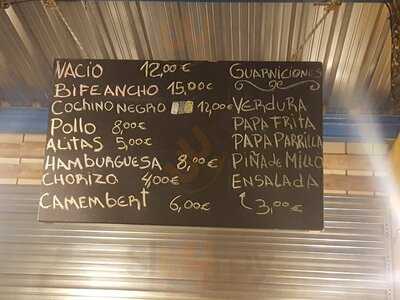 VACIO 12,00€
BIFE ANCHO 15,00€
COCHINO NEGRO 12,00€
POLLO 8,00€
ALITAS 5,00€
HAMBURGUESA 8,00€
CHORIZO 4,00€
CAMEMBERT 6,00€
GUARNICIONES
VERDURA
PAPA FRITA
PAPA PARRILLA
PIÑA DE MILLO
ENSALADA
3,00€